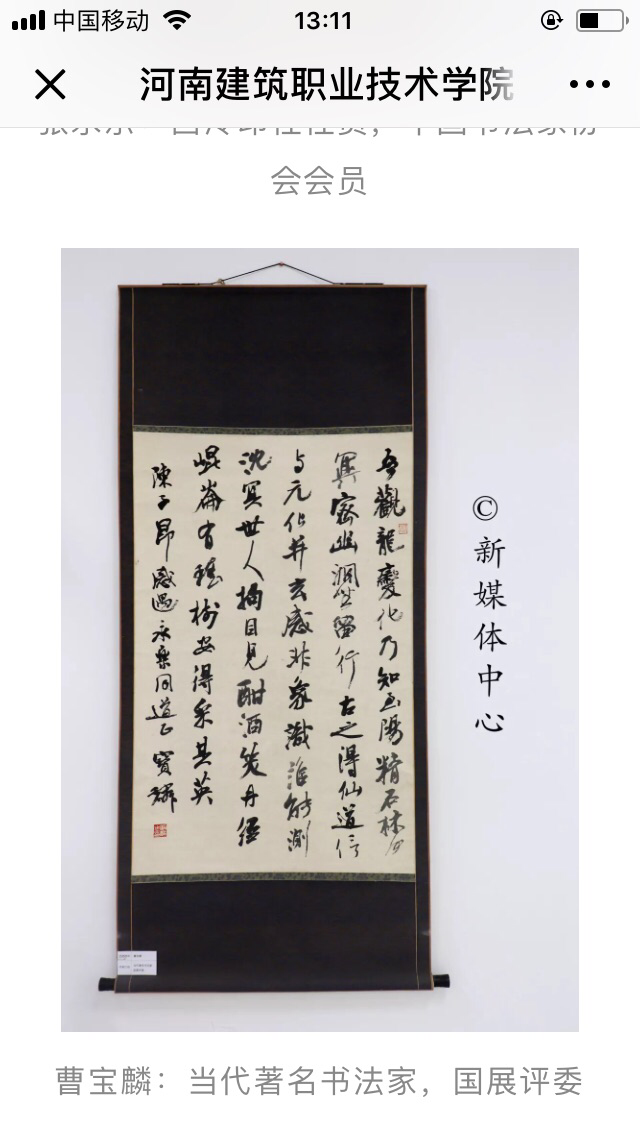 中国移动
13:11
河南建筑职业技术学院
会会员
吾觀龍變化乃知至陽精石林何
冥密幽洞無留行古之得仙道信
与元化并玄感非象識誰能測
沈冥世人拘目見酣酒笑丹經
崐崙有瑤樹安得采其英
陳子昂感遇永樂同道正寶麟
©新媒体中心
曹宝麟：当代著名书法家，国展评委